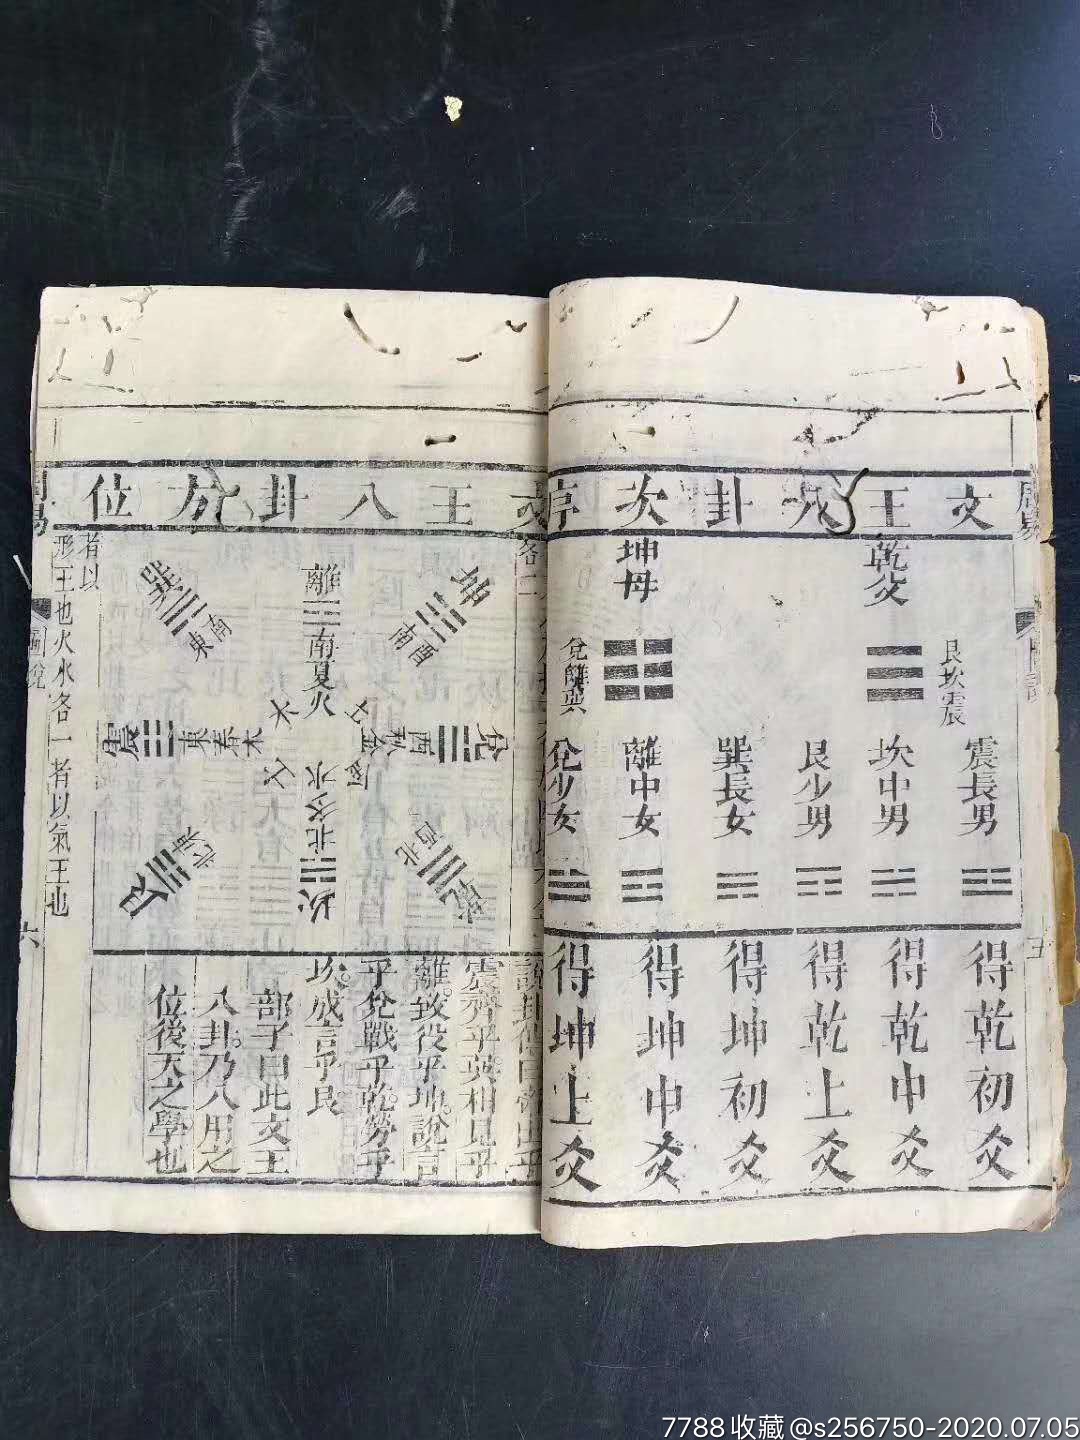 文王八卦次序
周易
乾父
坤母
艮坎震
兌離巽
震長男
坎中男
艮少男
巽長女
離中女
兌少女
得乾初爻
得乾中爻
得乾上爻
得坤初爻
得坤中爻
得坤上爻
五
文王八卦方位
離 南夏火
坤 西南
兌 西秋金
乾 西北
坎 北冬水
艮 東北
震 東春木
巽 東南
說卦傳曰帝出乎
震齊乎巽相見乎
離致役乎坤說言
乎兌戰乎乾勞乎
坎成言乎艮
邵子曰此文王
八卦乃入用之
位後天之學也
者以
形王也火水各一者以氣王也
周易
圖說
六
7788收藏@s256750-2020.07.05